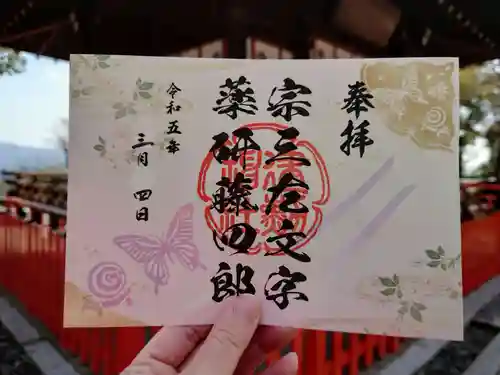 奉拝
宗三左文字
薬研藤四郎
令和五年
三月 四日